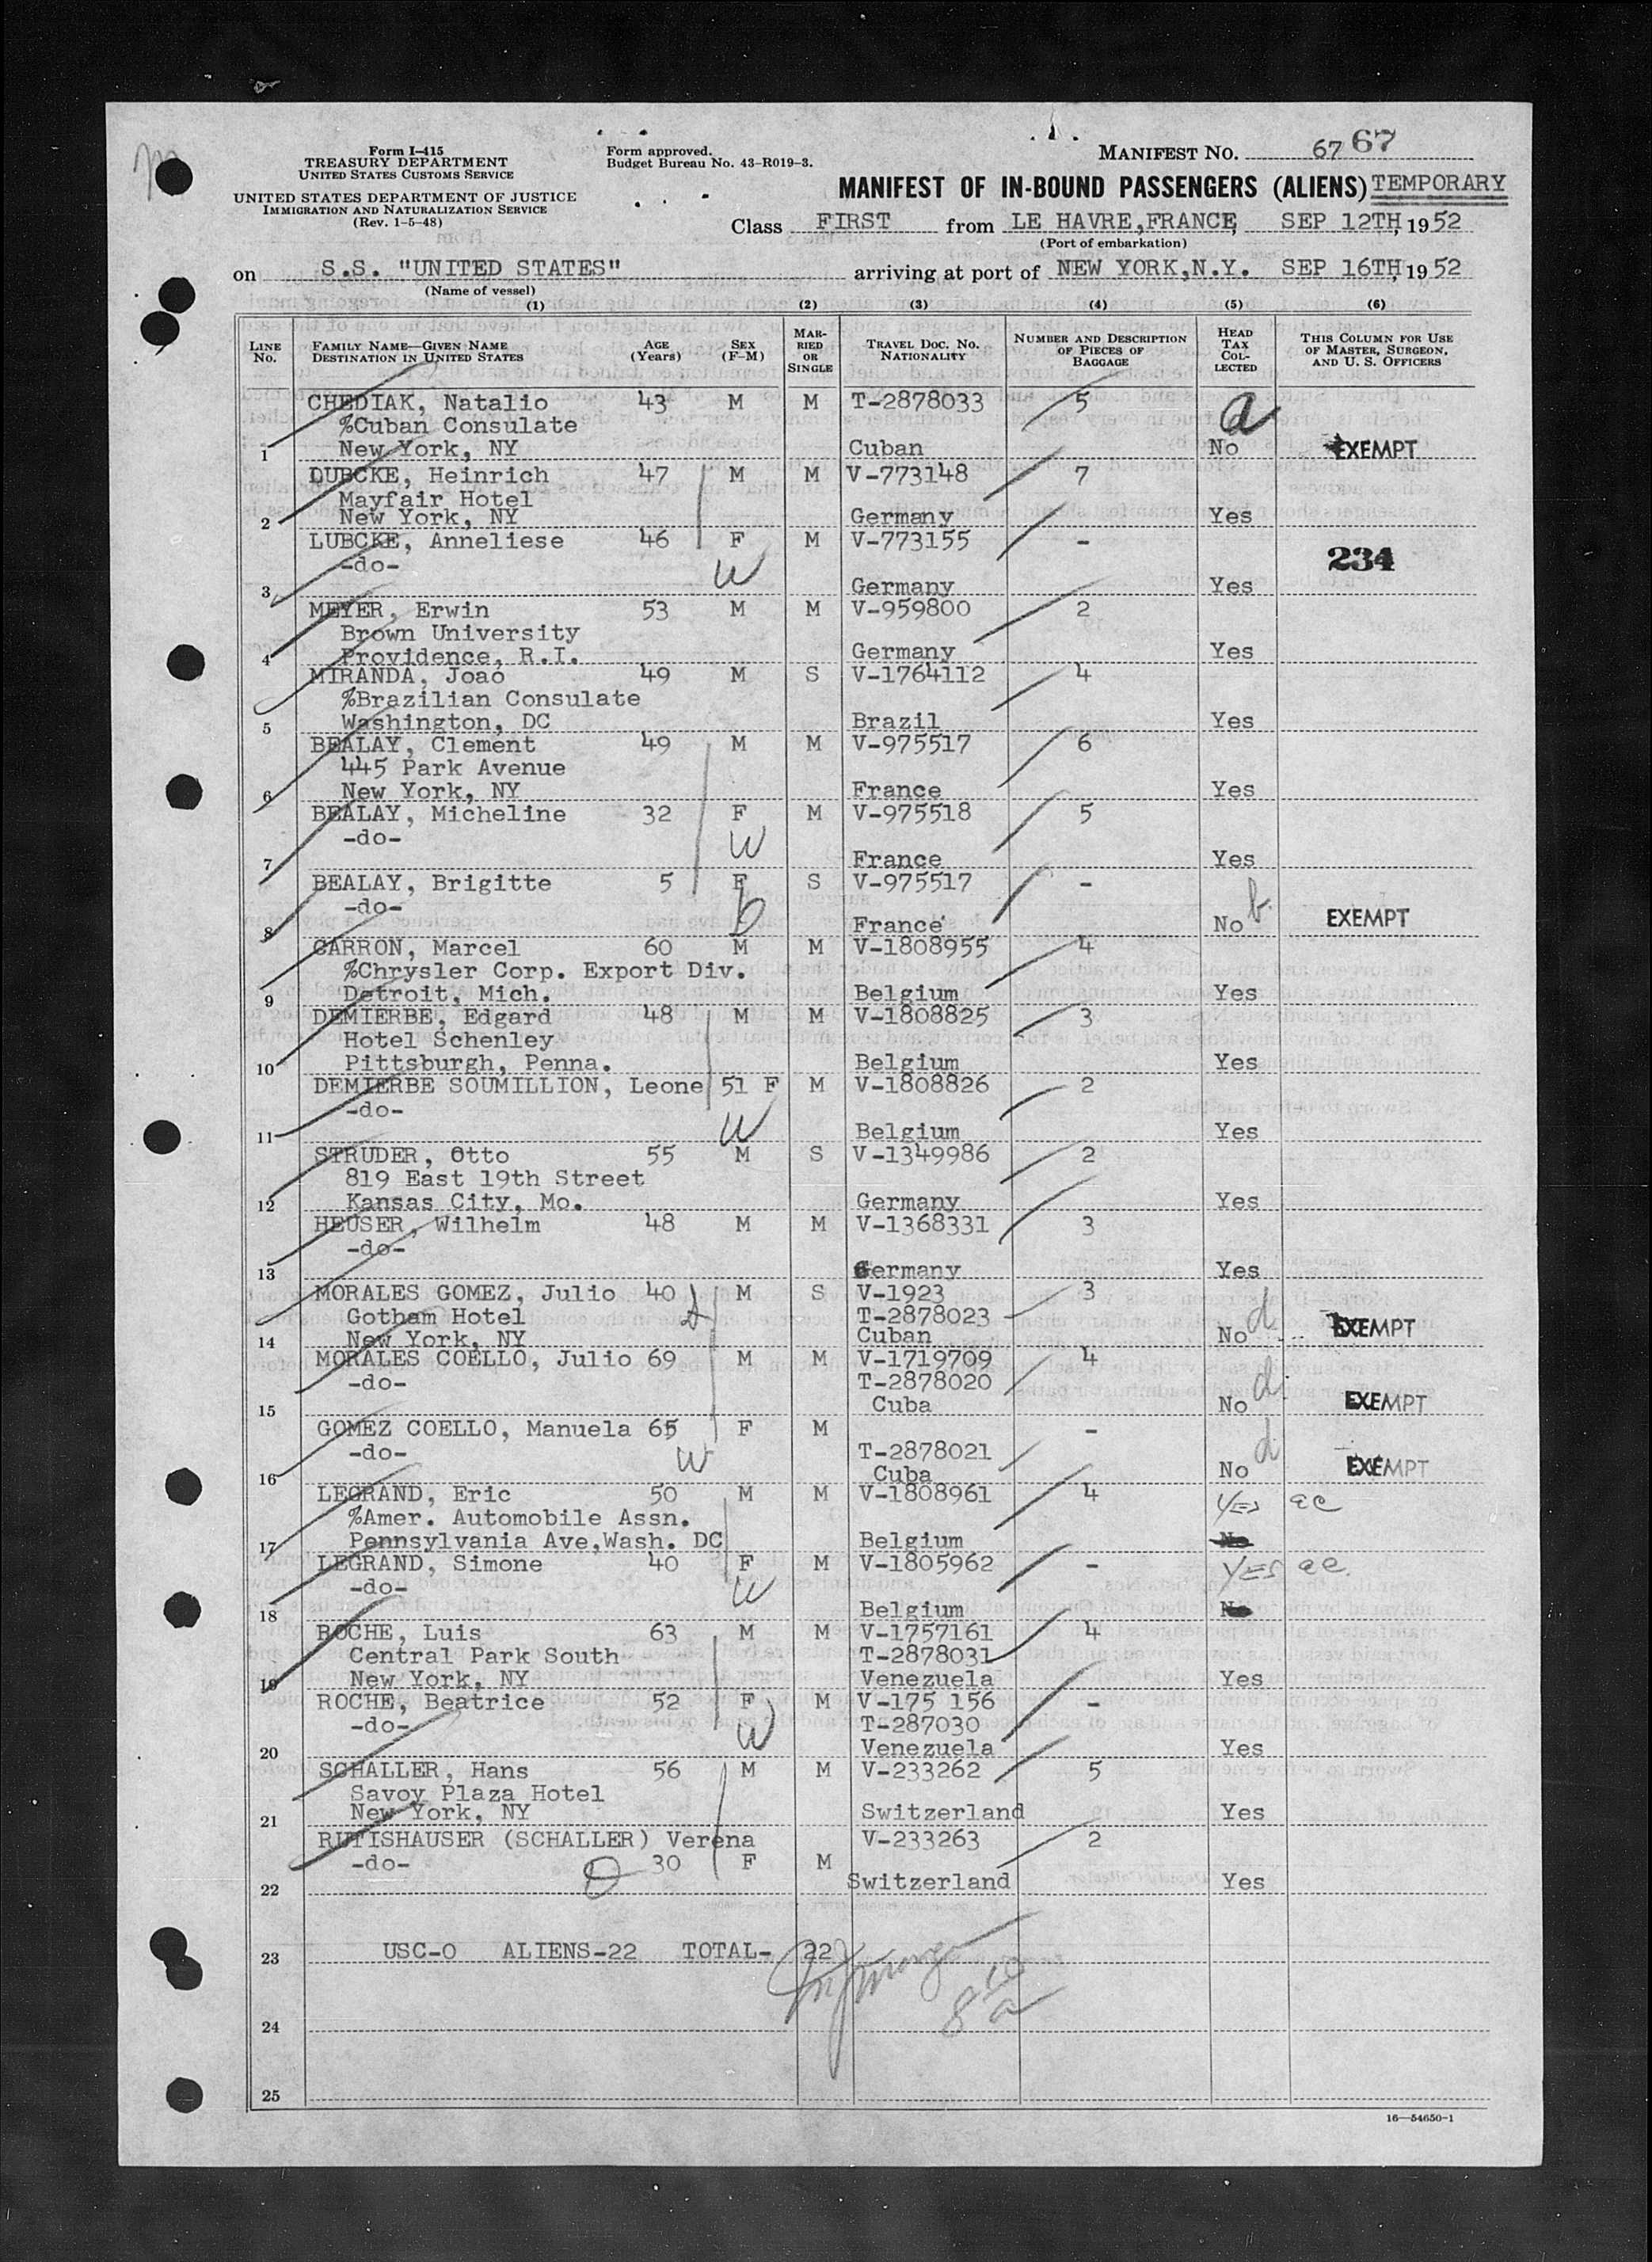 Form I-415
TREASURY DEPARTMENT
UNITED STATES CUSTOMS SERVICE
UNITED STATES DEPARTMENT OF JUSTICE
IMMIGRATION AND NATURALIZATION SERVICE
(Rev. 1-5-48)
Form approved.
Budget Bureau No. 43-R019-3.
MANIFEST NO. 67 67
MANIFEST OF IN-BOUND PASSENGERS (ALIENS) TEMPORARY
Class FIRST from LE HAVRE,FRANCE, SEP 12TH, 1952
(Port of embarkation)
on S.S. "UNITED STATES" arriving at port of NEW YORK,N.Y. SEP 16TH, 1952
(Name of vessel)
(1) (2) (3) (4) (5) (6)
LINE No. FAMILY NAME—GIVEN NAME DESTINATION IN UNITED STATES AGE (Years) SEX (F-M) MARRIED OR SINGLE TRAVEL DOC. NO. NATIONALITY NUMBER AND DESCRIPTION OF PIECES OF BAGGAGE HEAD TAX COLLECTED THIS COLUMN FOR USE OF MASTER, SURGEON, AND U. S. OFFICERS
CHEDIAK, Natalio 43 M M T-2878033 5 a
%Cuban Consulate
1 New York, NY Cuban No EXEMPT
DUBCKE, Heinrich 47 M M V-773148 7
Mayfair Hotel
2 New York, NY Germany Yes
LUBCKE, Anneliese 46 F M V-773155 - 234
-do- W
3 Germany Yes
MEYER, Erwin 53 M M V-959800 2
Brown University
4 Providence, R.I. Germany Yes
MIRANDA, Joao 49 M S V-1764112 4
%Brazilian Consulate
5 Washington, DC Brazil Yes
BEALAY, Clement 49 M M V-975517 6
445 Park Avenue
6 New York, NY France Yes
BEALAY, Micheline 32 F M V-975518 5
-do- W
7 France Yes
BEALAY, Brigitte 5 F S V-975517 -
-do- b
8 France No b. EXEMPT
CARRON, Marcel 60 M M V-1808955 4
%Chrysler Corp. Export Div.
9 Detroit, Mich. Belgium Yes
DEMIERBE, Edgard 48 M M V-1808825 3
Hotel Schenley
10 Pittsburgh, Penna. Belgium Yes
DEMIERBE SOUMILLION, Leone 51 F M V-1808826 2
-do- W
11 Belgium Yes
STRUDER, Otto 55 M S V-1349986 2
819 East 19th Street
12 Kansas City, Mo. Germany Yes
HEUSER, Wilhelm 48 M M V-1368331 3
-do-
13 Germany Yes
MORALES GOMEZ, Julio 40 M S V-1923 3
Gotham Hotel T-2878023
14 New York, NY Cuban No d EXEMPT
MORALES COELLO, Julio 69 M M V-1719709 4
-do- T-2878020
15 Cuba No d EXEMPT
GOMEZ COELLO, Manuela 65 F M -
-do- W T-2878021
16 Cuba No d EXEMPT
LEGRAND, Eric 50 M M V-1808961 4 YES ac
%Amer. Automobile Assn.
17 Pennsylvania Ave,Wash. DC Belgium No
LEGRAND, Simone 40 F M V-1805962 - YES ac.
-do- W
18 Belgium No
ROCHE, Luis 63 M M V-1757161 4
Central Park South T-2878031
19 New York, NY Venezuela Yes
ROCHE, Beatrice 52 F M V-175 156 -
-do- W T-287030
20 Venezuela Yes
SCHALLER, Hans 56 M M V-233262 5
Savoy Plaza Hotel
21 New York, NY Switzerland Yes
RUTISHAUSER (SCHALLER) Verena V-233263 2
-do- D 30 F M
22 Switzerland Yes
23 USC-0 ALIENS-22 TOTAL- 22
24
25
16—54650-1